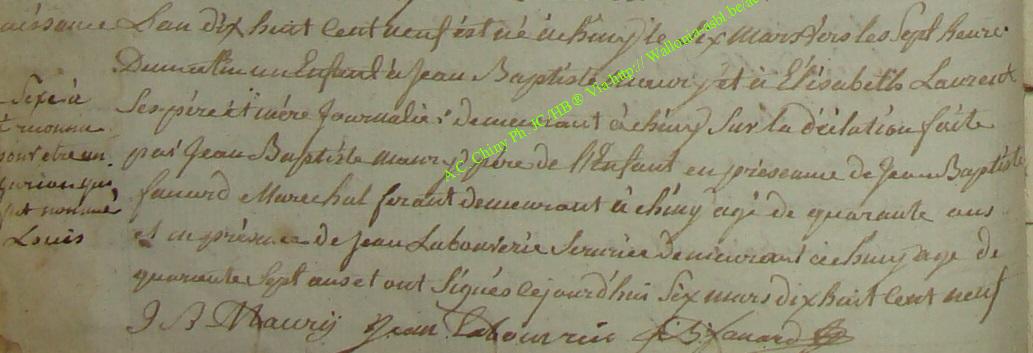 naissance
Sexe à
été reconnu
pour etre un
garçon qui
fut nommé
Louis
L'an dix huit cent neuf est né à chiny le six mars vers les Sept heure
Du matin un Enfant à Jean Baptiste maury et à Elisabeth Laurent
Ses père et mère Journalier demeurant à chiny Sur la déclation faite
par Jean Baptiste maury père de l'Enfant en présence de Jean Baptiste
fanard Marechal ferant demeurant à chiny agé de quarante ans
et en présence de Jean Labouverie Serurier demeurant à chiny age de
quarante Sept ans et ont Signés cejourd'hui Six mars dix huit cent neuf
J B Maurÿ Jean Labouverie J B fanard
A.C. Chiny Ph. JC/HB ® Via http:// Wallonia-asbl.be/ac